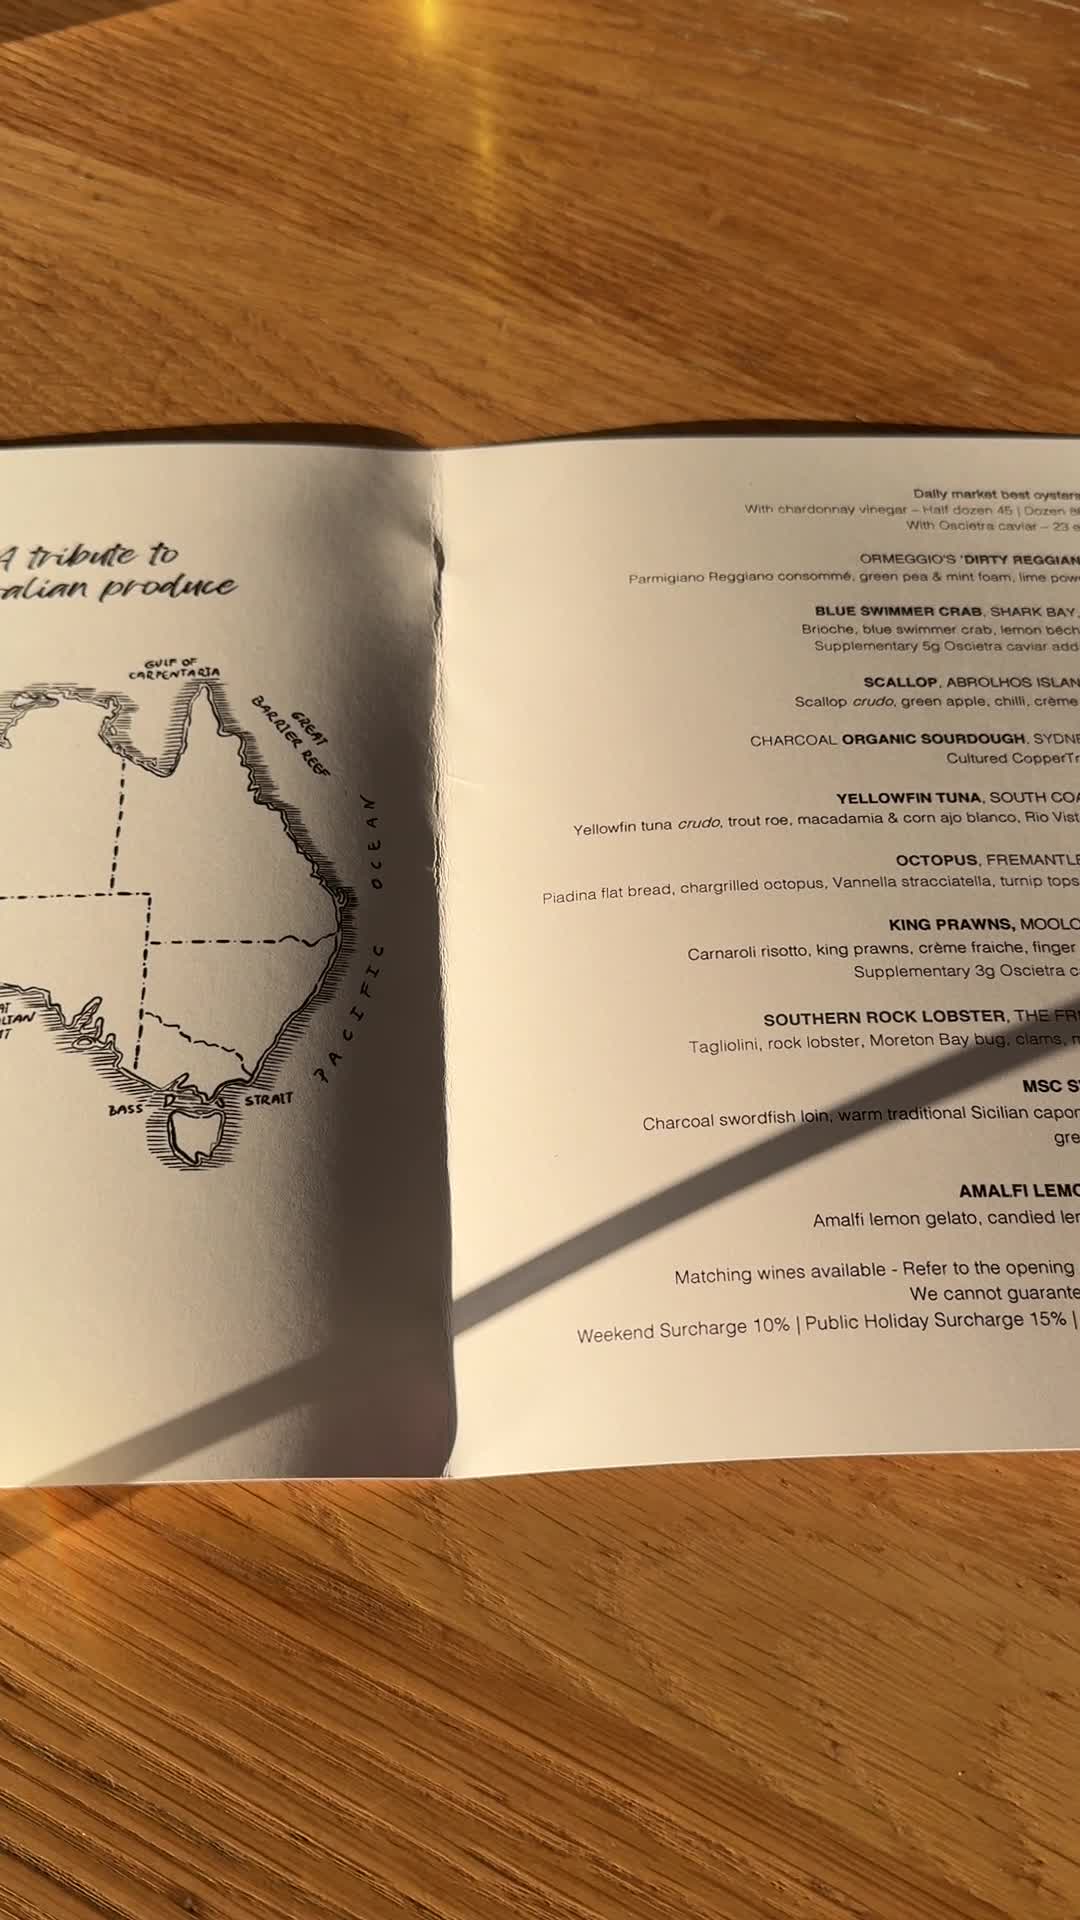 A tribute to
alian produce
GULF OF
CARPENTARIA
GREAT
BARRIER REEF
PACIFIC OCEAN
BASS STRAIT
Daily market best oysters
With chardonnay vinegar – Half dozen 45 | Dozen
With Oscietra caviar – 23
ORMEGGIO'S 'DIRTY REGGIAN
Parmigiano Reggiano consommé, green pea & mint foam, lime pow
BLUE SWIMMER CRAB, SHARK BAY,
Brioche, blue swimmer crab, lemon béch
Supplementary 5g Oscietra caviar add
SCALLOP, ABROLHOS ISLAN
Scallop crudo, green apple, chilli, crème
CHARCOAL ORGANIC SOURDOUGH, SYDNE
Cultured CopperTr
YELLOWFIN TUNA, SOUTH COA
Yellowfin tuna crudo, trout roe, macadamia & corn ajo blanco, Rio Vist
OCTOPUS, FREMANTLE
Piadina flat bread, chargrilled octopus, Vannella stracciatella, turnip tops
KING PRAWNS, MOOLO
Carnaroli risotto, king prawns, crème fraiche, finger
Supplementary 3g Oscietra c
SOUTHERN ROCK LOBSTER, THE FR
Tagliolini, rock lobster, Moreton Bay bug, clams,
MSC S
Charcoal swordfish loin, warm traditional Sicilian capon
gre
AMALFI LEMO
Amalfi lemon gelato, candied ler
Matching wines available - Refer to the opening
We cannot guarante
Weekend Surcharge 10% | Public Holiday Surcharge 15% |